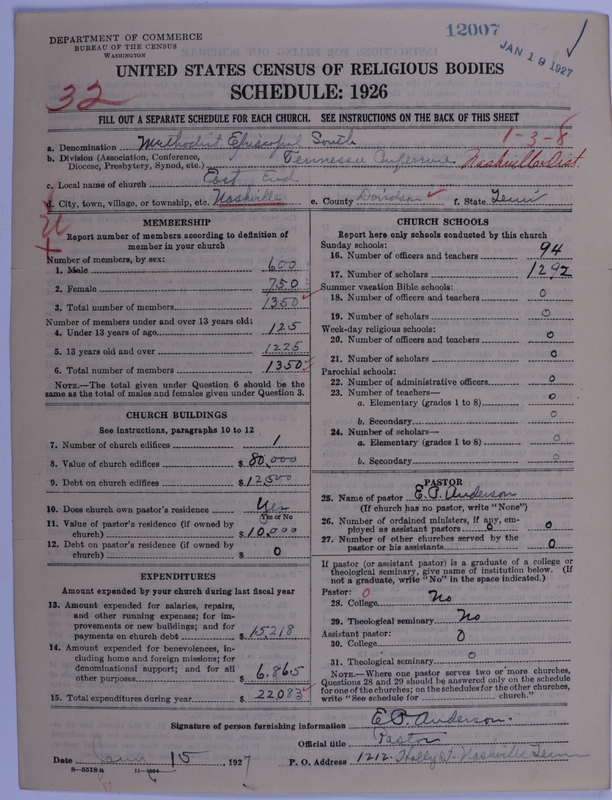 DEPARTMENT OF COMMERCE
BUREAU OF THE CENSUS
WASHINGTON
12007
JAN 19 1927
UNITED STATES CENSUS OF RELIGIOUS BODIES
SCHEDULE: 1926
32
FILL OUT A SEPARATE SCHEDULE FOR EACH CHURCH. SEE INSTRUCTIONS ON THE BACK OF THIS SHEET
1-3-8
a. Denomination Methodist Episcopal South
b. Division (Association, Conference, Diocese, Presbytery, Synod, etc.) Tennessee Nashville Dist.
c. Local name of church East End
d. City, town, village, or township, etc. Nashville e. County Davidson f. State Tenn
MEMBERSHIP
Report number of members according to definition of
member in your church
Number of members, by sex:
1. Male 600
2. Female 750
3. Total number of members 1350
Number of members under and over 13 years old:
4. Under 13 years of age 125
5. 13 years old and over 1225
6. Total number of members 1350
NOTE.—The total given under Question 6 should be the
same as the total of males and females given under Question 3.
CHURCH BUILDINGS
See instructions, paragraphs 10 to 12
7. Number of church edifices 1
8. Value of church edifices $ 80,000
9. Debt on church edifices $ 12,500
10. Does church own pastor's residence Yes
Yes or No
11. Value of pastor's residence (if owned by
church) $ 10,000
12. Debt on pastor's residence (if owned by
church) $ 0
EXPENDITURES
Amount expended by your church during last fiscal year
13. Amount expended for salaries, repairs,
and other running expenses; for im-
provements or new buildings; and for
payments on church debt $ 15218
14. Amount expended for benevolences, in-
cluding home and foreign missions; for
denominational support; and for all
other purposes $ 6.865
15. Total expenditures during year $ 22,083
CHURCH SCHOOLS
Report here only schools conducted by this church
Sunday schools:
16. Number of officers and teachers 94
17. Number of scholars 1292
Summer vacation Bible schools:
18. Number of officers and teachers 0
19. Number of scholars 0
Week-day religious schools:
20. Number of officers and teachers 0
21. Number of scholars 0
Parochial schools:
22. Number of administrative officers 0
23. Number of teachers—
a. Elementary (grades 1 to 8) 0
b. Secondary 0
24. Number of scholars—
a. Elementary (grades 1 to 8) 0
b. Secondary 0
PASTOR
25. Name of pastor E. P. Anderson
(If church has no pastor, write "None")
26. Number of ordained ministers, if any, em-
ployed as assistant pastors 0 0
27. Number of other churches served by the
pastor or his assistants 0
If pastor (or assistant pastor) is a graduate of a college or
theological seminary, give name of institution below. (If
not a graduate, write "No" in the space indicated.)
Pastor: 0
28. College No
29. Theological seminary No
Assistant pastor: 0
30. College
31. Theological seminary 0
NOTE.—Where one pastor serves two or more churches,
Questions 28 and 29 should be answered only on the schedule
for one of the churches; on the schedules for the other churches,
write "See schedule for church."
Signature of person furnishing information E. P. Anderson.
Official title Pastor
Date Jany 15, 1927 P. O. Address 1212 Holly St. Nashville Tenn
8-5518a 11-9664